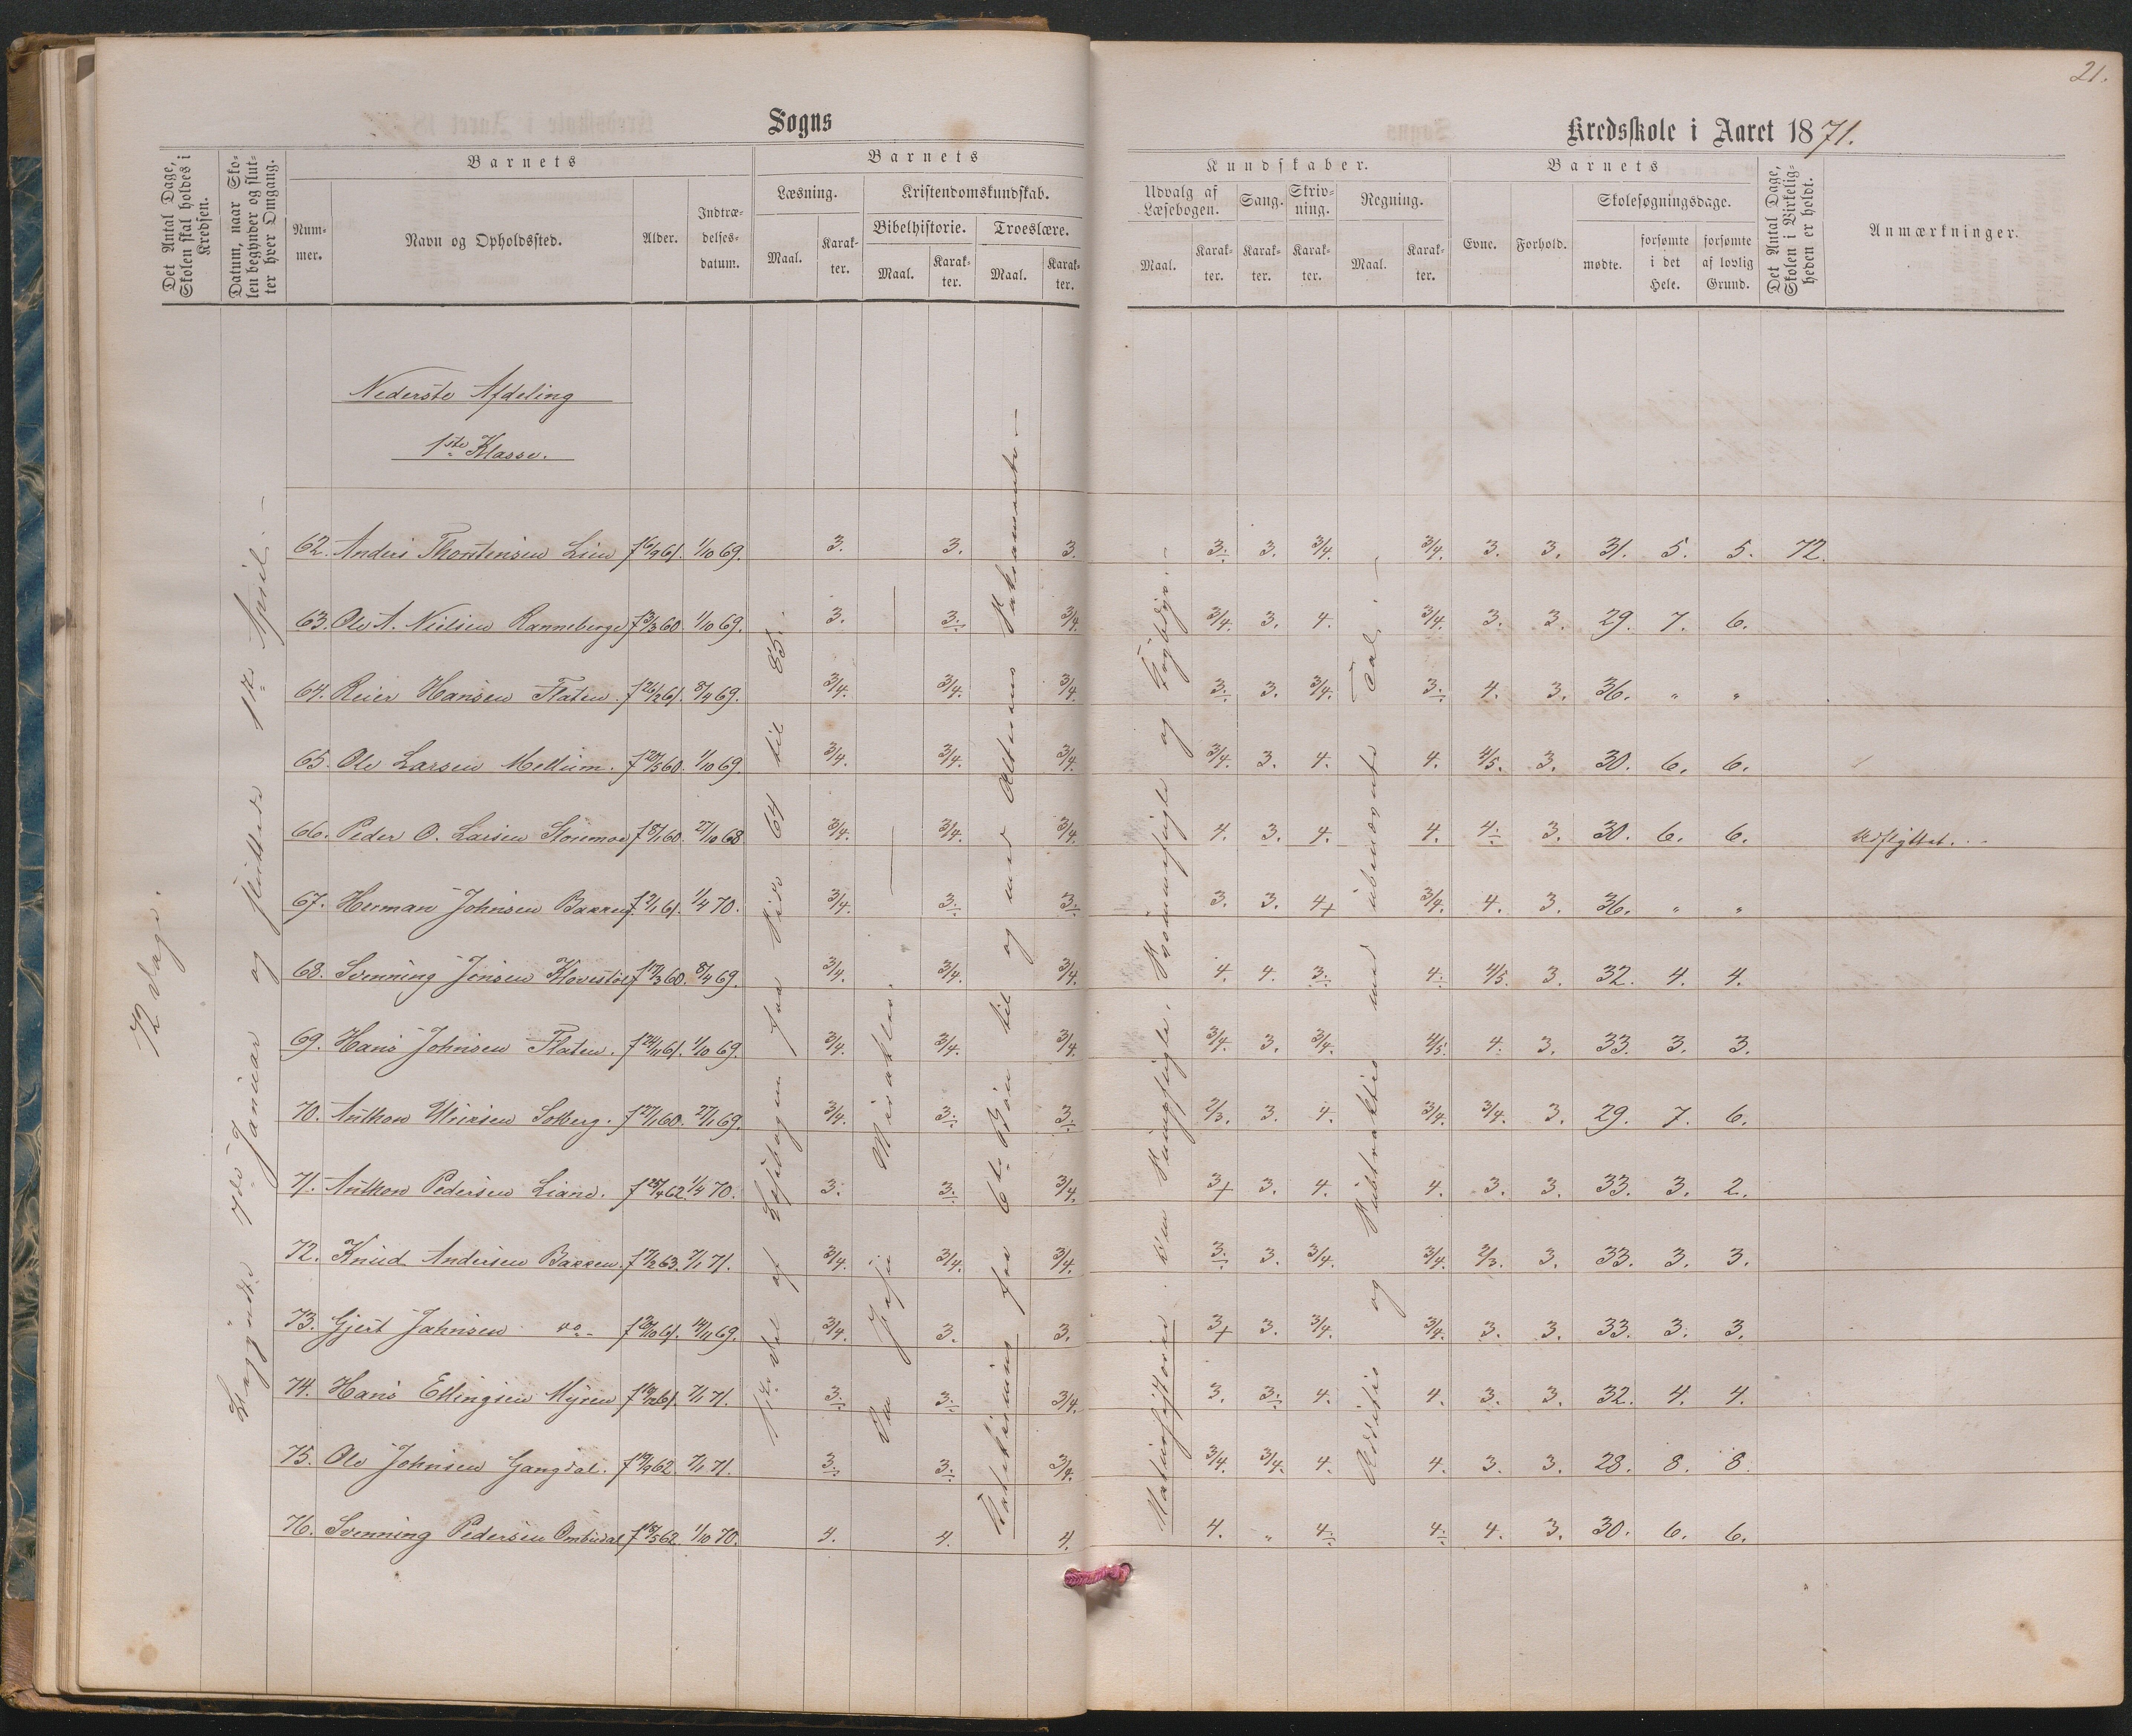 21.
Sogns
Kredsskole i Aaret 1871.
Det Antal Dage, Skolen skal holdes i Kredsen.
Datum, naar Skolen begynder og slutter hver Omgang.
Nummer.
Barnets
Navn og Opholdssted.
Alder.
Indtrædelsesdatum.
Barnets
Læsning.
Maal.
Karakter.
Kristendomskundskab.
Bibelhistorie.
Maal.
Karakter.
Troeslære.
Maal.
Karakter.
Kundskaber.
Udvalg af Læsebogen.
Maal.
Karakter.
Sang.
Karakter.
Skrivning.
Karakter.
Regning.
Maal.
Karakter.
Barnets
Evne.
Forhold.
Skolesøgningsdage.
mødte.
forsømte i det Hele.
forsømte af lovlig Grund.
Det Antal Dage, Skolen i Virkeligheden er holdt.
Anmærkninger.
72 Dage.
Begyndte 7de Januar og sluttede 1ste April. —
Nederste Afdeling
1ste Klasse.
1ste Del af Læsebogen fra Side 64 til 85.
Om Jesu Mirakler.
Katekismus fra 6te Bøn til og med Alterens Sakramente —
Naturhistorie
og Fugleliv. —
Addition og Subtraktion med ubenævnte Tal. —
62. Anders Thorstensen Lien f 16/9 61. 1/10 69. 3. 3. 3. 3. 3. 3/4. 3/4. 3. 3. 31. 5. 5. 72.
63. Ole A. Nielsen Ranneberge f 3/3 60. 1/10 69. 3. 3. 3/4. 3/4. 3. 4. 3/4. 3. 3. 29. 7. 6.
64. Reier Hansen Flaten. f 26/2 61. 8/4 69. 3/4. 3/4. 3/4. 3. 3. 3/4. 3. 4. 3. 36. " "
65. Ole Larsen Mellum. f 20/5 60. 1/10 69. 3/4. 3/4. 3/4. 3/4. 3. 4. 4. 4/5. 3. 30. 6. 6.
66. Peder O. Larsen Storemoe f 8/1 60. 27/10 68 3/4. 3/4. 3/4. 4. 3. 4. 4. 4. 3. 30. 6. 6. Udflyttet.
67. Herman Johnsen Bakken f 2/1 61. 1/4 70. 3/4. 3. 3. 3. 3. 4+ 3/4. 4. 3. 36. " "
68. Svenning Jensen Klovestøl f 17/3 60. 8/4 69. 3/4. 3/4. 3/4. 4. 4. 3. 4. 4/5. 3. 32. 4. 4.
69. Hans Johnsen Flaten. f 24/11 61. 1/10 69. 3/4. 3/4. 3/4. 3/4. 3. 3/4. 4/5. 4. 3. 33. 3. 3.
70. Anthon Ulriksen Solberg. f 27/1 60. 27/1 69. 3/4. 3. 3. 2/3. 3. 4. 3/4. 3/4. 3. 29. 7. 6.
71. Anthon Pedersen Liane. f 25/4 62. 1/4 70. 3. 3. 3/4. 3+ 3. 4. 4. 3. 3. 33. 3. 2.
72. Knud Andersen Bakken. f 17/2 63. 7/1 71. 3/4. 3/4. 3/4. 3. 3. 3/4. 3/4. 2/3. 3. 33. 3. 3.
73. Gjert Jahnsen do - f 20/10 61. 14/11 69. 3/4. 3. 3. 3+ 3. 3/4. 3/4. 3. 3. 33. 3. 3.
74. Hans Ellingsen Myren f 19/12 61. 7/1 71. 3. 3. 3/4. 3. 3. 4. 4. 3. 3. 32. 4. 4.
75. Ole Johnsen Gangdal. f 19/9 62. 7/1 71. 3. 3. 3/4. 3/4. 3/4. 4. 4. 3. 3. 28. 8. 8.
76. Svenning Pedersen Ombudal f 18/5 62. 1/10 70. 4. 4. 4. 4. " 4. 4. 4. 3. 30. 6. 6.